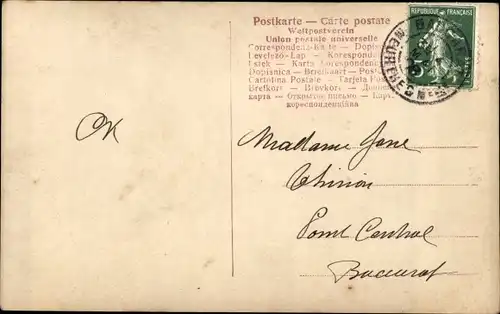 Postkarte — Carte postale
Weltpostverein
Union postale universelle
Correspondenz-Karte — Dopis
Levelező-Lap — Korespond
Lístek — Karta korespondenc
Dopisnica — Briefkaart — Post
Cartolina Postale — Tarjeta Pos
Brefkort — Brevkort — Допис
карта — Открытое письмо — Кар
кореспонденційна
REPUBLIQUE FRANÇAISE
OK
Madame Jane
Thirion
Pont Central
Baccarat